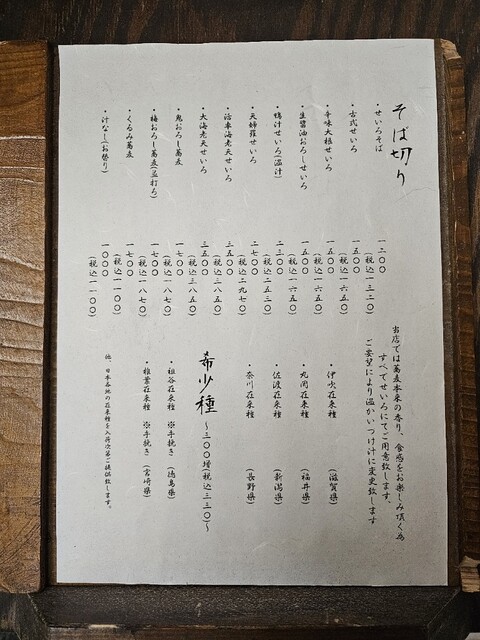 そば切り
・せいろそば 一二〇〇
(税込一三二〇)
・古式せいろ 一五〇〇
(税込一六五〇)
・辛味大根せいろ 一五〇〇
(税込一六五〇)
・生醤油おろしせいろ 一五〇〇
(税込一六五〇)
・鴨汁せいろ(温汁) 二三〇〇
(税込二五三〇)
・天婦羅せいろ 二七〇〇
(税込二九七〇)
・活車海老天せいろ 三五〇〇
(税込三八五〇)
・大海老天せいろ 三五〇〇
(税込三八五〇)
・鬼おろし蕎麦 一七〇〇
(税込一八七〇)
・梅おろし蕎麦 一七〇〇
(税込一八七〇)
・くるみ蕎麦 一七〇〇
(税込一一〇〇)
・汁なし(お替り) 一〇〇〇
(税込一一〇〇)
当店では蕎麦本来の香り、食感をお楽しみ頂く為
すべてせいろにてご用意致します。
ご要望により温かいつけ汁に変更致します
・伊吹在来種 (滋賀県)
・丸岡在来種 (福井県)
・佐渡在来種 (新潟県)
・奈川在来種 (長野県)
希少種 ～三〇〇増(税込三三〇)～
・祖谷在来種 ※手挽き (徳島県)
・椎葉在来種 ※手挽き (宮崎県)
他、日本各地の在来種を入荷次第ご提供致します。